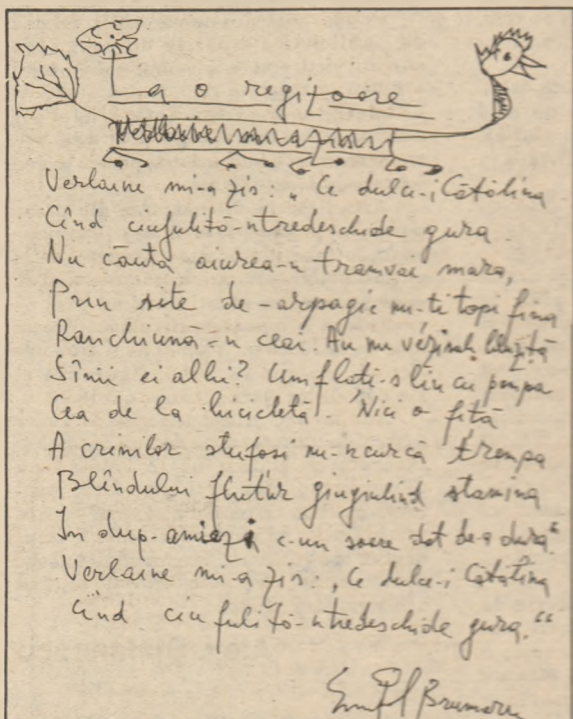 La o regizoare
Verlaine mi-a zis: „Ce dulce-i Cătălina
Cînd ciufulită-ntredeschide gura.
Nu căuta aiurea-n tramvai mura,
Prin site de-arpagic nu-ți topi fina
Ranchiună-n ceai. Au nu vezi sub bluziță
Sînii ei albi? Umflați-s lin cu pompa
Cea de la bicicletă. Nici o fiță
A crinilor stufoși nu-ncurcă trompa
Blîndului flutur giugiulind stamina
În dup-amiezi c-un soare dat de-a dura."
Verlaine mi-a zis: „Ce dulce-i Cătălina
Cînd ciufulită-ntredeschide gura."
Emil Brumaru